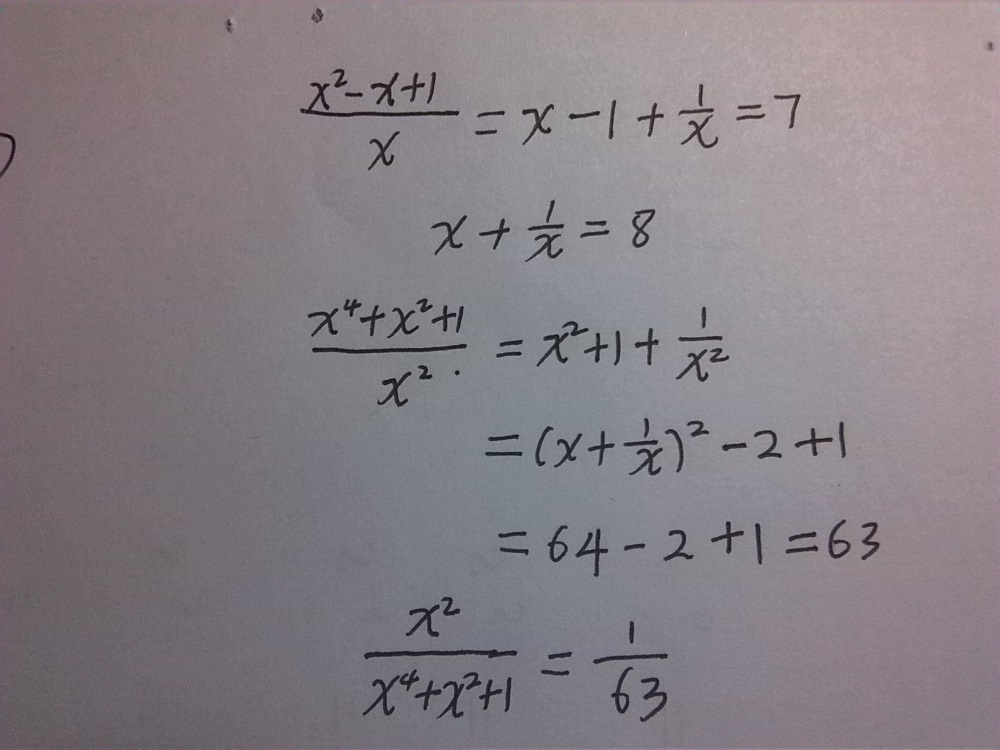 (x²-x+1)/x = x-1+1/x = 7
x+1/x = 8
(x⁴+x²+1)/x² = x²+1+1/x²
= (x+1/x)²-2+1
= 64-2+1 = 63
x²/(x⁴+x²+1) = 1/63